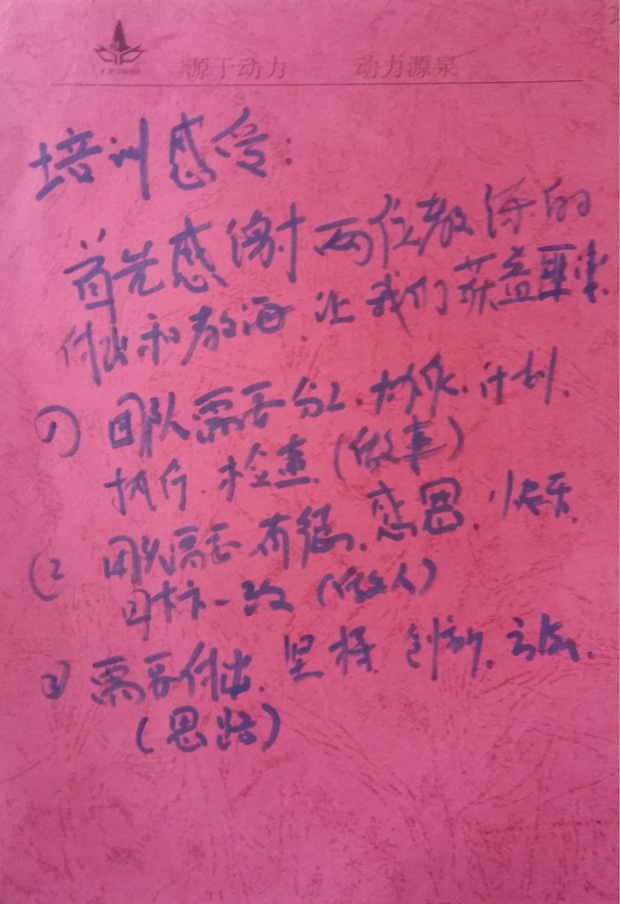 源于动力 动力源泉
培训感受:
首先感谢两位教练的
付出和教诲 让我们获益匪浅
1) 团队需要分工.协作.计划.
执行.检查.(做事)
(2 团队需要有德.感恩.快乐.
目标一致 (做人)
3) 需要付出.坚持.创新.
(思路)